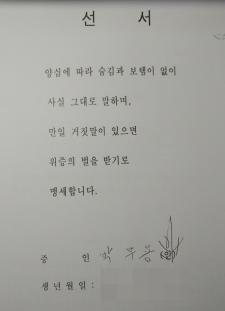 선 서
양심에 따라 숨김과 보탬이 없이
사실 그대로 말하며,
만일 거짓말이 있으면
위증의 벌을 받기로
맹세합니다.
증 인 박 무 용 (인)
생년월일 :